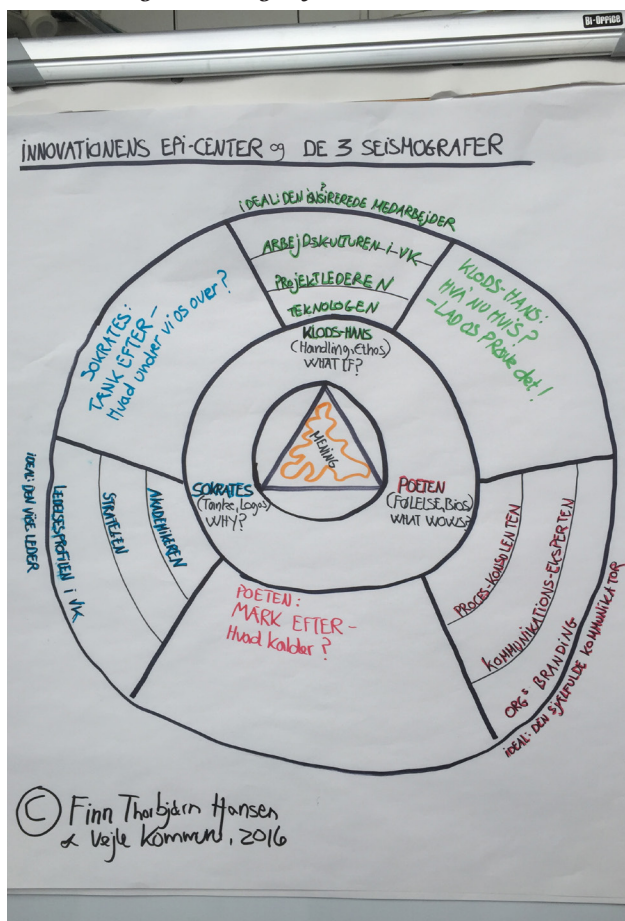 Bi-OFFiCE
iNNOVATiONENS EPi-CENTER og DE 3 SEiSMOGRAFER
iDEAL: DEN iNSPiREREDE MEDARBEJDER
ARBEJDSKULTUREN i VK
PROJEKTLEDEREN
TEKNOLOGEN
KLODS-HANS
(Handling, Ethos)
WHAT IF?
KLODS-HANS:
HVA' NU HVIS?
- LAD OS PRØVE det!
SOKRATES:
TÆNK EFTER -
Hvad undrer vi os over?
MENING
SOKRATES
(Tanke, Logos)
WHY?
POETEN
(FøLELSE, Bios)
WHAT WOWS?
iDEAL: DEN ViSE LEDER
LEDELSESPROFILEN i VK
STRATEGEN
AKADEMIKEREN
POETEN:
MÆRK EFTER -
Hvad kalder?
PROCES-KONSULENTEN
KOMMUNIKATIONS-EKSPERTEN
ORGs BRANDING
iDEAL: DEN SJÆLFULDE KOMMUNIKATOR
© Finn Thorbjørn Hansen
& Vejle Kommun, 2016